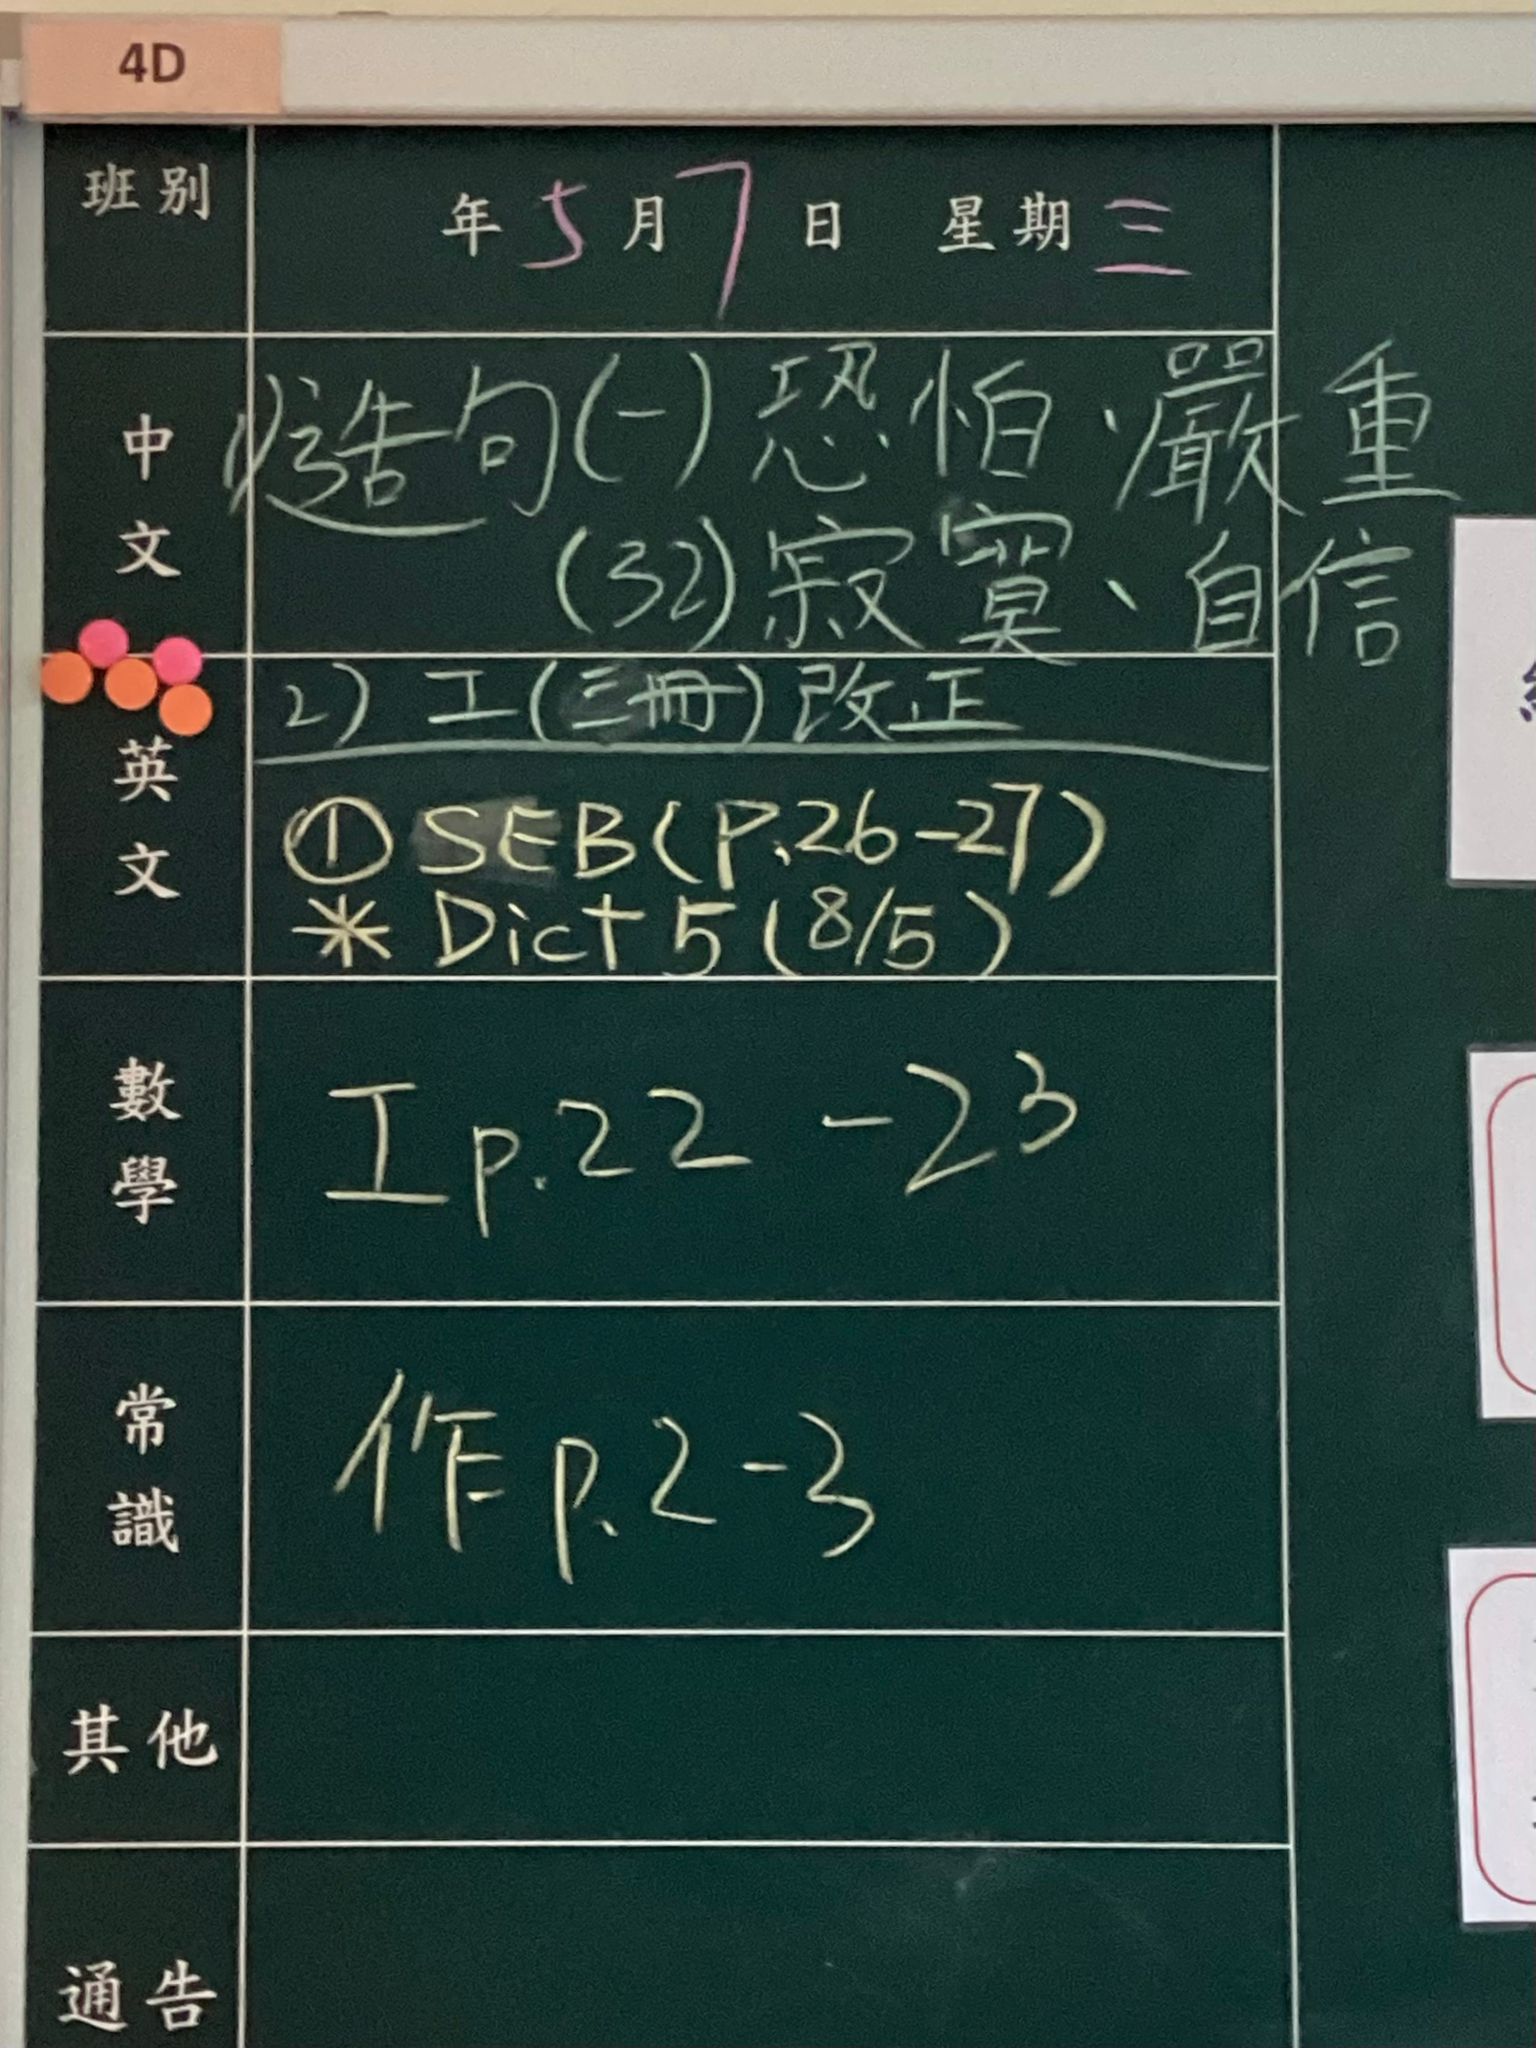 4D
班別
年 5 月 7 日 星期 三
中文
1)造句(一)恐怕、嚴重
(32)寂寞、自信
2) 工(三冊)改正
英文
① SEB(P.26-27)
* Dict 5 (8/5)
數學
工 p.22 -23
常識
作 p.2-3
其他
通告